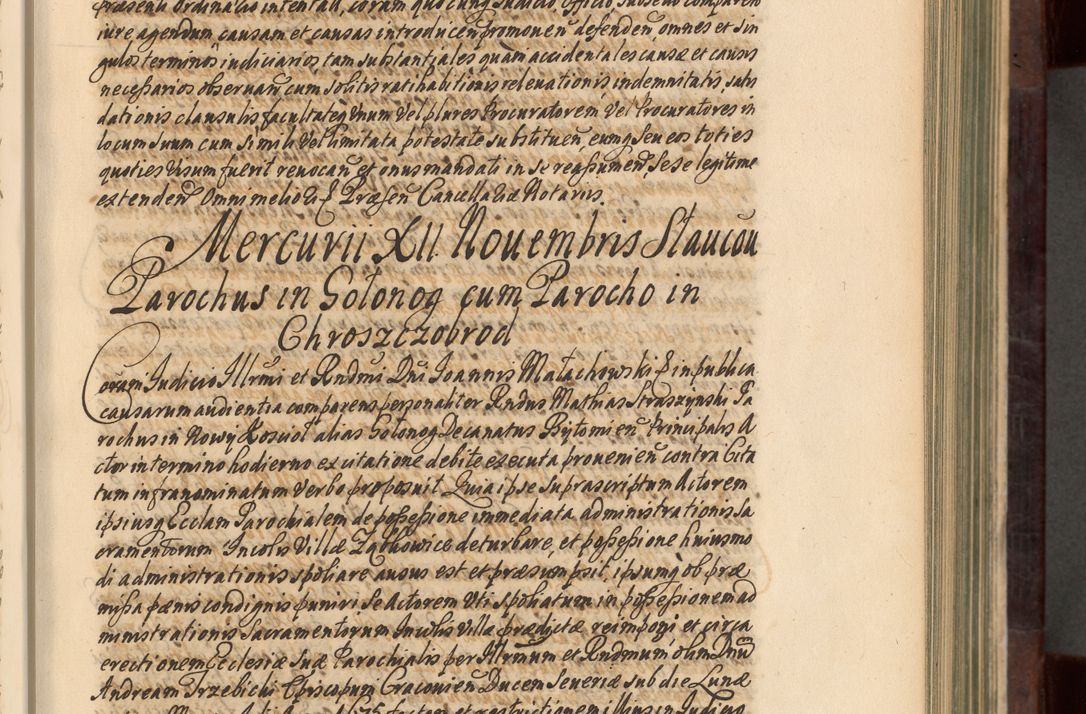 præsenti ordinario intentan, coram quocunq Judicio Officio, Subseno comparen
iure agendum causam et causas introducen promonen defenden, omnes et sin
gulos terminos iudiciarios tam substantiales quam accidentales causæ et causis
necessarios obseruan cum solitis ratihabitionis releuationis indemnitatis, satis
dationis clausulis facultateq Vnum Vel plures Procuratorem Vel Procuratores in
locum suum cum simili Vel limitata potestate substituen, eumq seu eos toties
quoties Visum fuerit reuocan et onus mandati in se reassumen sese legitime
extenden Omni meliori &c Præsen Cancellariæ Notariis.
Mercurii XII Nouembris Slaucou
Parochus in Gołonog cum Parocho in
Chroszczobrod
Coram Judicio Illrmi et Rndmi Dni Joannis Małachowski &c in publica
causarum audientia comparens personaliter Rndus Mathias Straszynski Pa
rochus in Nowy Koscioł alias Gołonog Decanatus Bytomien Principalis A
ctor in termino hodierno ex citatione debite executa prouenien contra Cita
tum infranominatum Verbo proposuit Quia ipse suprascriptum Actorem
ipsiusq Ecclam Parochialem de possessione immediata administrationis Sa
cramentorum Incolis Villæ Ząbkowice deturbare, et possessione huiusmo
di administrationis spoliare ausus est et præsumpsit, ipsumq ob præ
missa pænis condignis puniri Se Actorem Uti spoliatum in possessionem ad
ministrationis Sacramentorum Incolis Villæ prædictæ reimponi et circa
erectionem Ecclesiæ suæ Parochialis per Illrmum et Rndmum olim Dnum
Andream Trzebicki Episcopum Cracouien Ducem Seueriæ sub die Lunæ